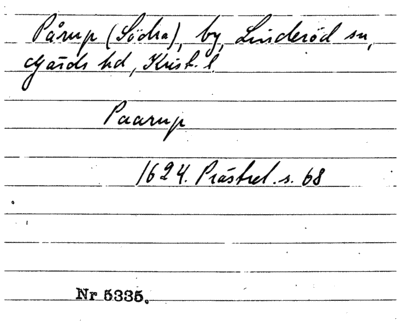 Pårup (Södra), by, Linderöd sn,
Gärds hd, Krist. l.
Paarup
1624. Prästrel. s. 68
Nr 5335.